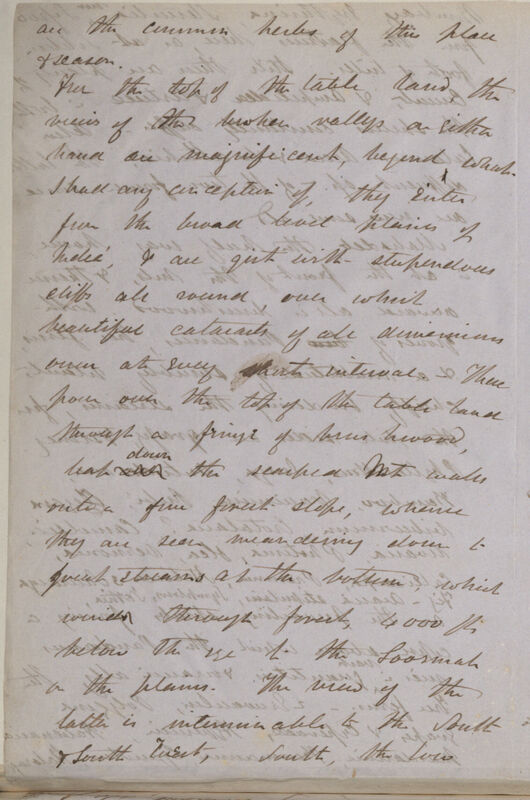 are the common herbs of this place
& season.
From the top of the table land the
views of the broken valleys on either
hand are magnificent, beyond what
I had any conception of, they enter
from the broad level plains of
India, & are girt with stupendous
cliffs all round over which
beautiful cataracts of all dimensions
over at every short interval. These
pour over the top of the table land
through a fringe of brushwood,
leap down the scarped Mt walls
onto a fine forest slope, whence
they are seen meandering down to
great streams at the bottom, which
wind through forest, 4000 ft
below the eye to the Soormah
on the plains. The view of the
latter is interminable to the South
& South West, South, the low